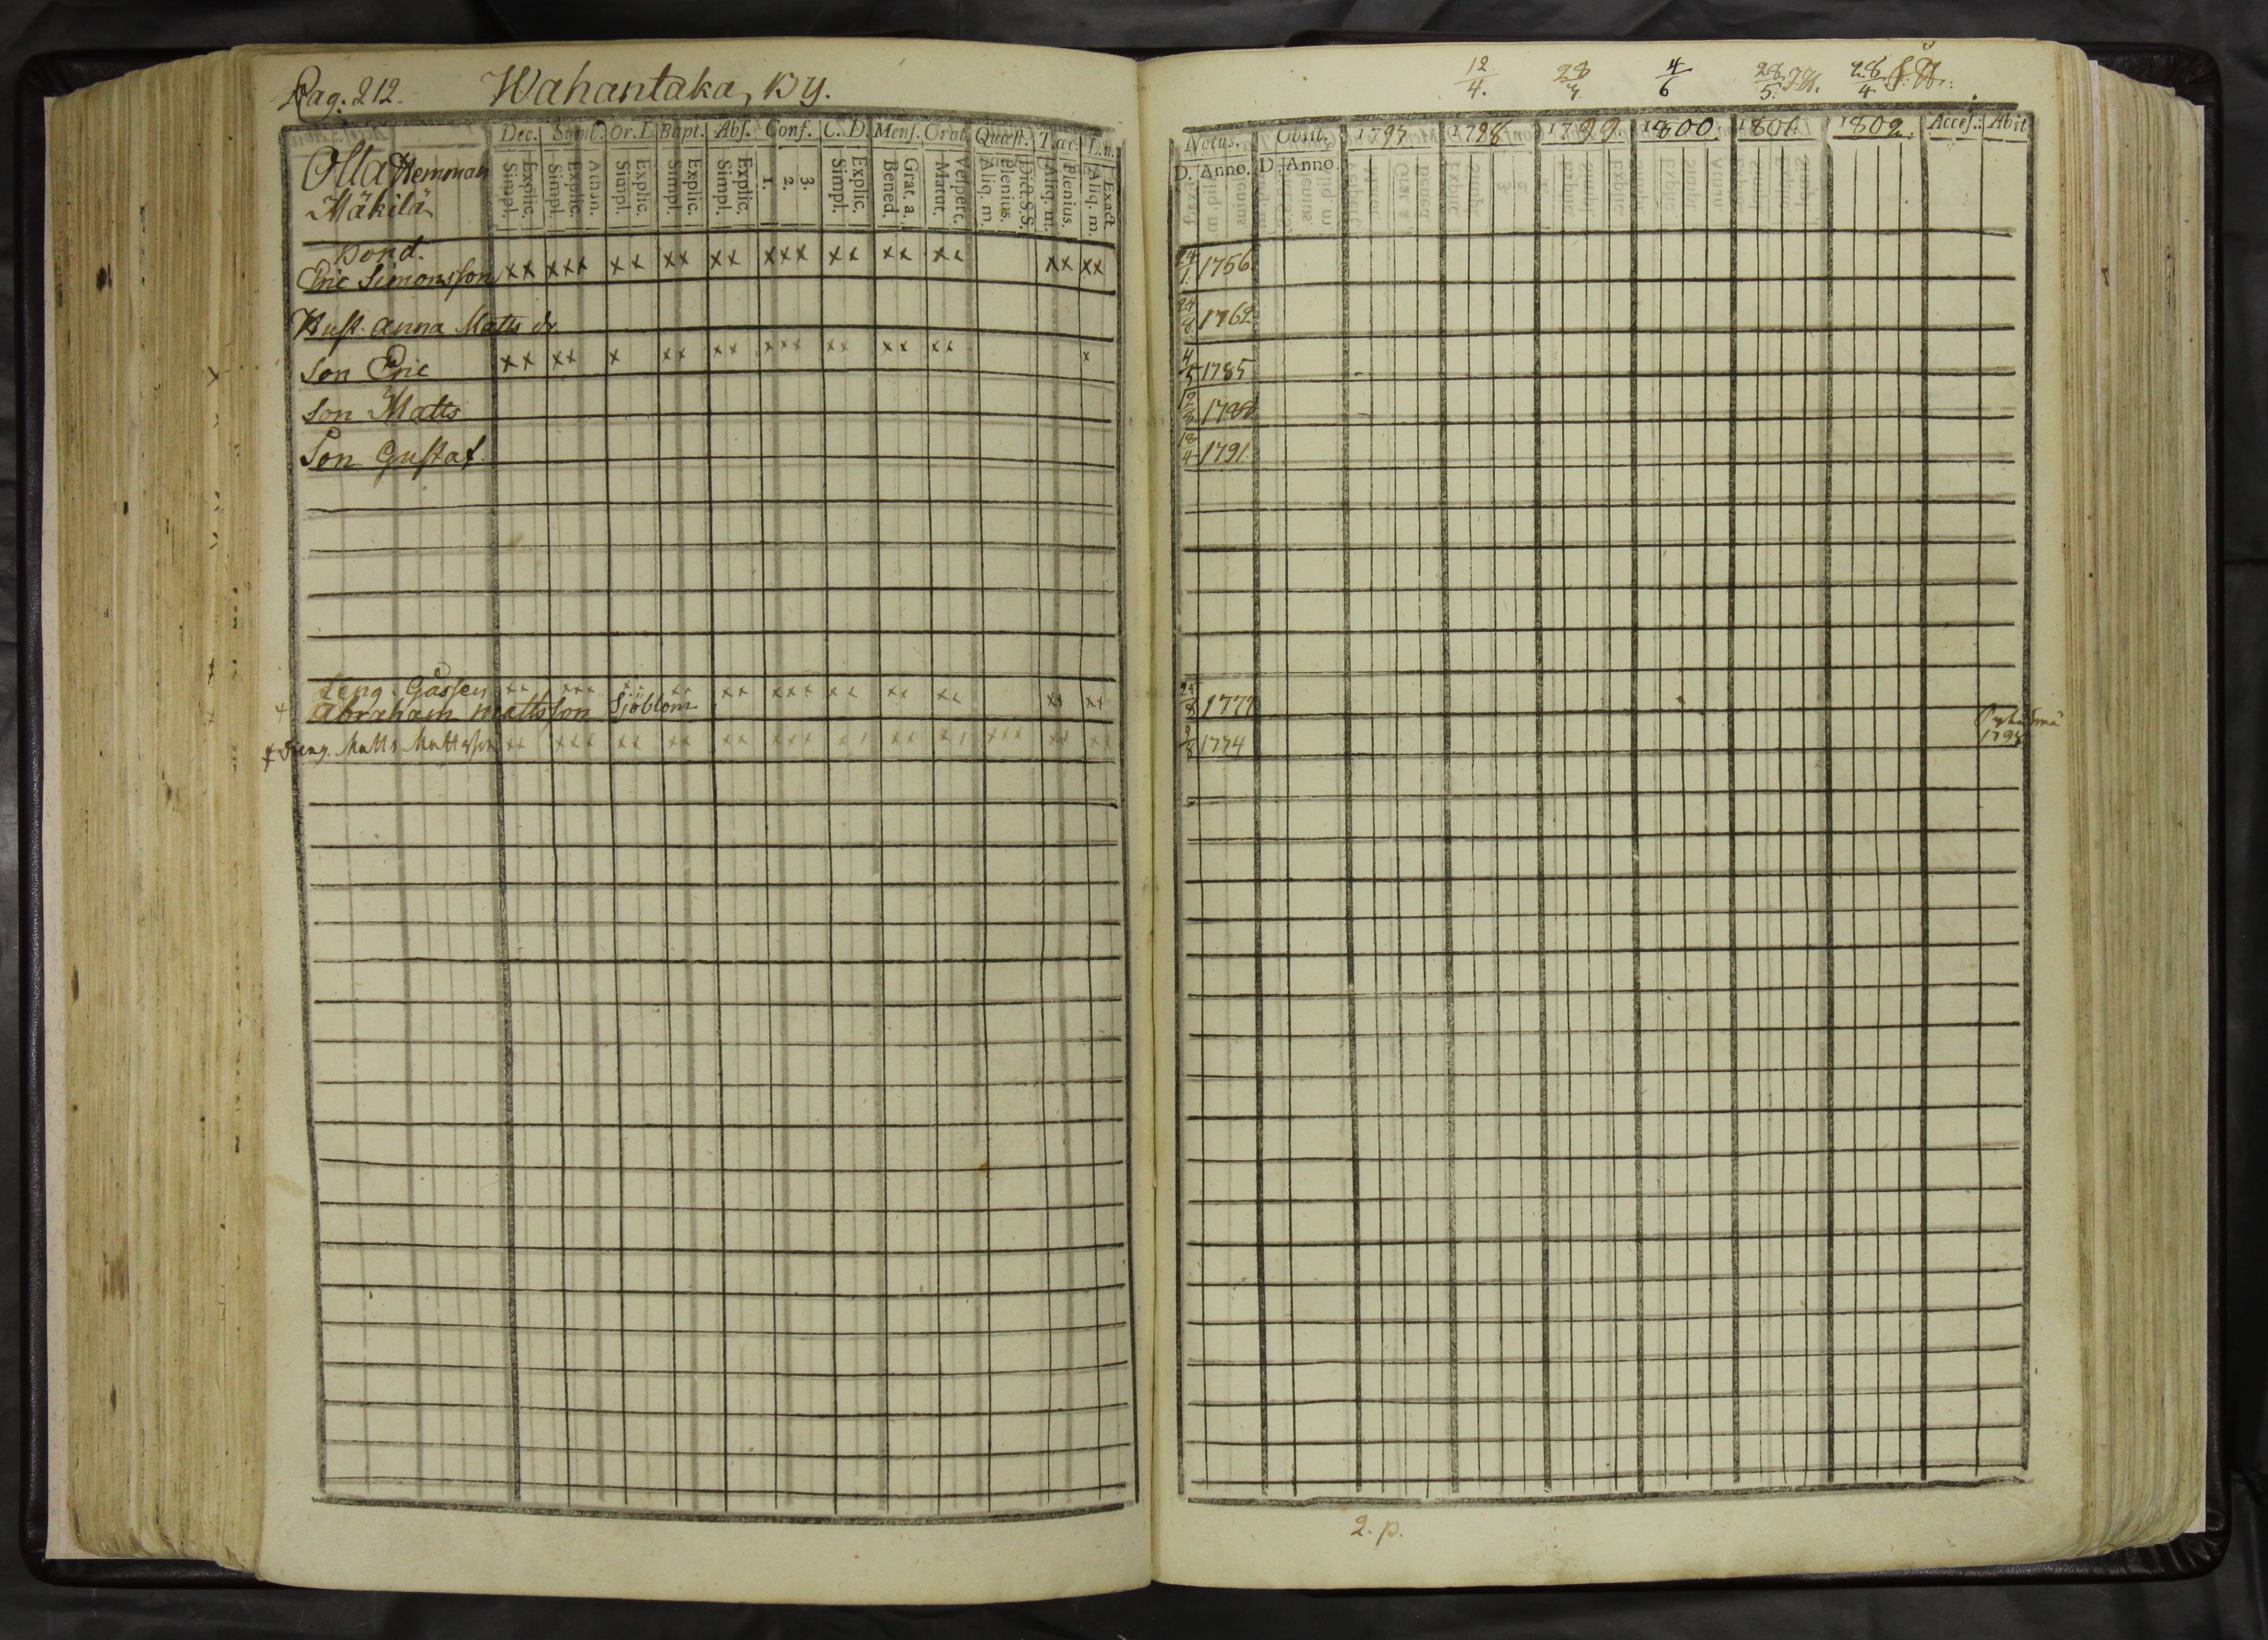 Pag. 212. Wahantaka, By.
Olla Hemman
Mäkilä
Dec. Symb. Or. D. Bapt. Abs. Conf. C. D. Mens. Orat. Quæst. T. œc. L. n.
Simpl. Explic. Simpl. Explic. Athan. Simpl. Explic. Simpl. Explic. Simpl. Explic. 1. 2. 3. Simpl. Explic. Bened. Grat. a. Matut. Vespert. Aliq. m. Plenius. Dict. S.S. Aliq. m. Plenius. Aliq. m. Exact.
Bond.
Eric Simonsson xx xxx xx xx xx xxx xx xx xx xx xx
Hust. Anna Matts dr
Son Eric xx xx x xx xx xxx xx xx xx x
Son Matts
Son Gustaf
Abraham Mattsson Sjöblom xx xxx xx xx xx xxx xx xx xx xx xx
Dreng. Matts Mattsson xx xxx xx xx xx xxx xx xx xx xxx xx xx
12/4. 28/4 4/6 28/5. 28/4
Natus. Obiit. 1797 1798 1799 1800. 1801. 1802. Access. Abit
D. Anno. D. Anno.
24/1. 1756
24/8. 1762
4/5 1785
12/8 1788
18/4 1791.
24/8 1777
9/8 1774
1798
2. p.